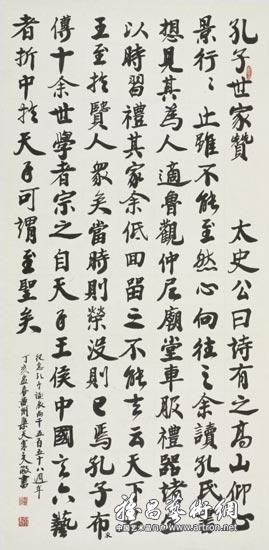 孔子世家贊 太史公曰詩有之高山仰止
景行〻止雖不能至然心向往之余讀孔氏書
想見其為人適魯觀仲尼廟堂車服禮器諸生
以時習禮其家余低回留之不能去云天下君
王至於賢人眾矣當時則榮沒則已焉孔子布衣
傳十余世學者宗之自天子王侯中國言六藝
者折中於夫子可謂至聖矣
紀念孔子誕辰兩千五百五十八週年
丁亥孟春黃州
敬書
雅昌藝術網
中国艺术品门户 www.artron.net